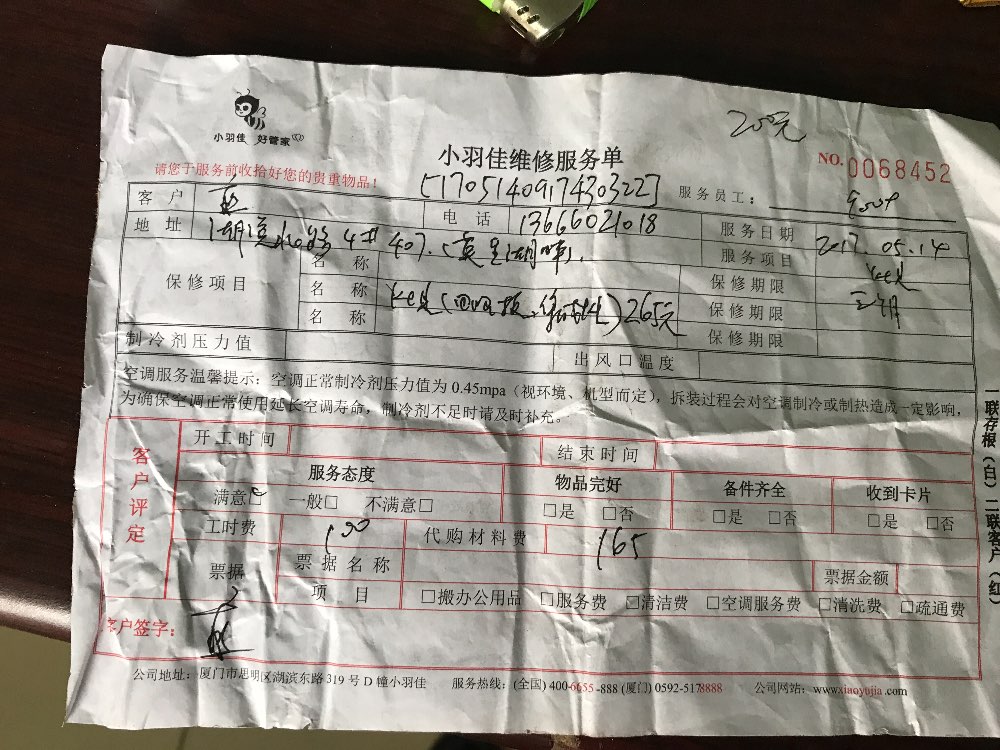 小羽佳 好管家
小羽佳维修服务单
NO.0068452
请您于服务前收拾好您的贵重物品！
[1705140917430322]
服务员工：
客户
电话 13666021018
服务日期 2017.05.14
地址 4# 407
服务项目
保修项目
名称
保修期限
名称 265元
保修期限
名称
保修期限
制冷剂压力值
出风口温度
空调服务温馨提示：空调正常制冷剂压力值为 0.45mpa（视环境、机型而定），拆装过程会对空调制冷或制热造成一定影响，
为确保空调正常使用延长空调寿命，制冷剂不足时请及时补充。
一联存根（白）二联客户（红）
客户评定
开工时间
结束时间
服务态度
物品完好
备件齐全
收到卡片
满意□ 一般□ 不满意□
□是 □否
□是 □否
□是 □否
工时费 100
代购材料费 165
票据
票据名称
票据金额
项目
□搬办公用品 □服务费 □清洁费 □空调服务费 □清洗费 □疏通费
客户签字：
公司地址：厦门市思明区湖滨东路 319 号 D 幢小羽佳 服务热线：(全国) 400-6655-888 (厦门) 0592-5178888 公司网站：www.xiaoyujia.com